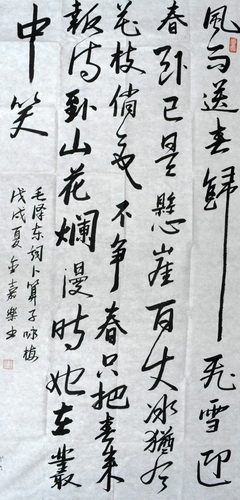 風雨送春歸飛雪迎
春到已是懸崖百丈冰猶有
花枝俏也不争春只把春来
報待到山花爛漫時她在叢
中笑
毛泽东词卜算子咏梅
戊戌夏金嘉樂书